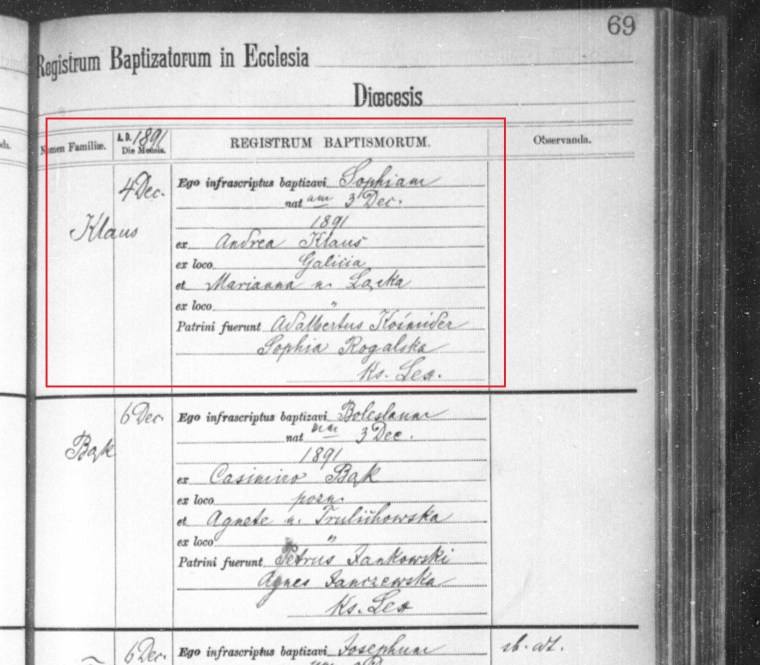 69
Registrum Baptizatorum in Ecclesia
Diœcesis
Nomen Familiæ.
A. D. 1891
Die Mensis.
REGISTRUM BAPTISMORUM.
Observanda.
4 Dec.
Klaus
Ego infrascriptus baptizavi Sophiam
nat am 3 Dec.
1891
ex Andrea Klaus
ex loco Galicia
et Marianna n.
ex loco "
Patrini fuerunt Adalbertus
Sophia Rogalska
Ks. Leo.
6 Dec
Bąk
Ego infrascriptus baptizavi Boleslaum
nat um 3 Dec.
1891
ex Casimiro Bąk
ex loco pozn.
et Agnete n.
ex loco "
Patrini fuerunt Petrus Jankowski
Agnes Janczewska
Ks. Leo
6 Dec.
Ego infrascriptus baptizavi Josephum